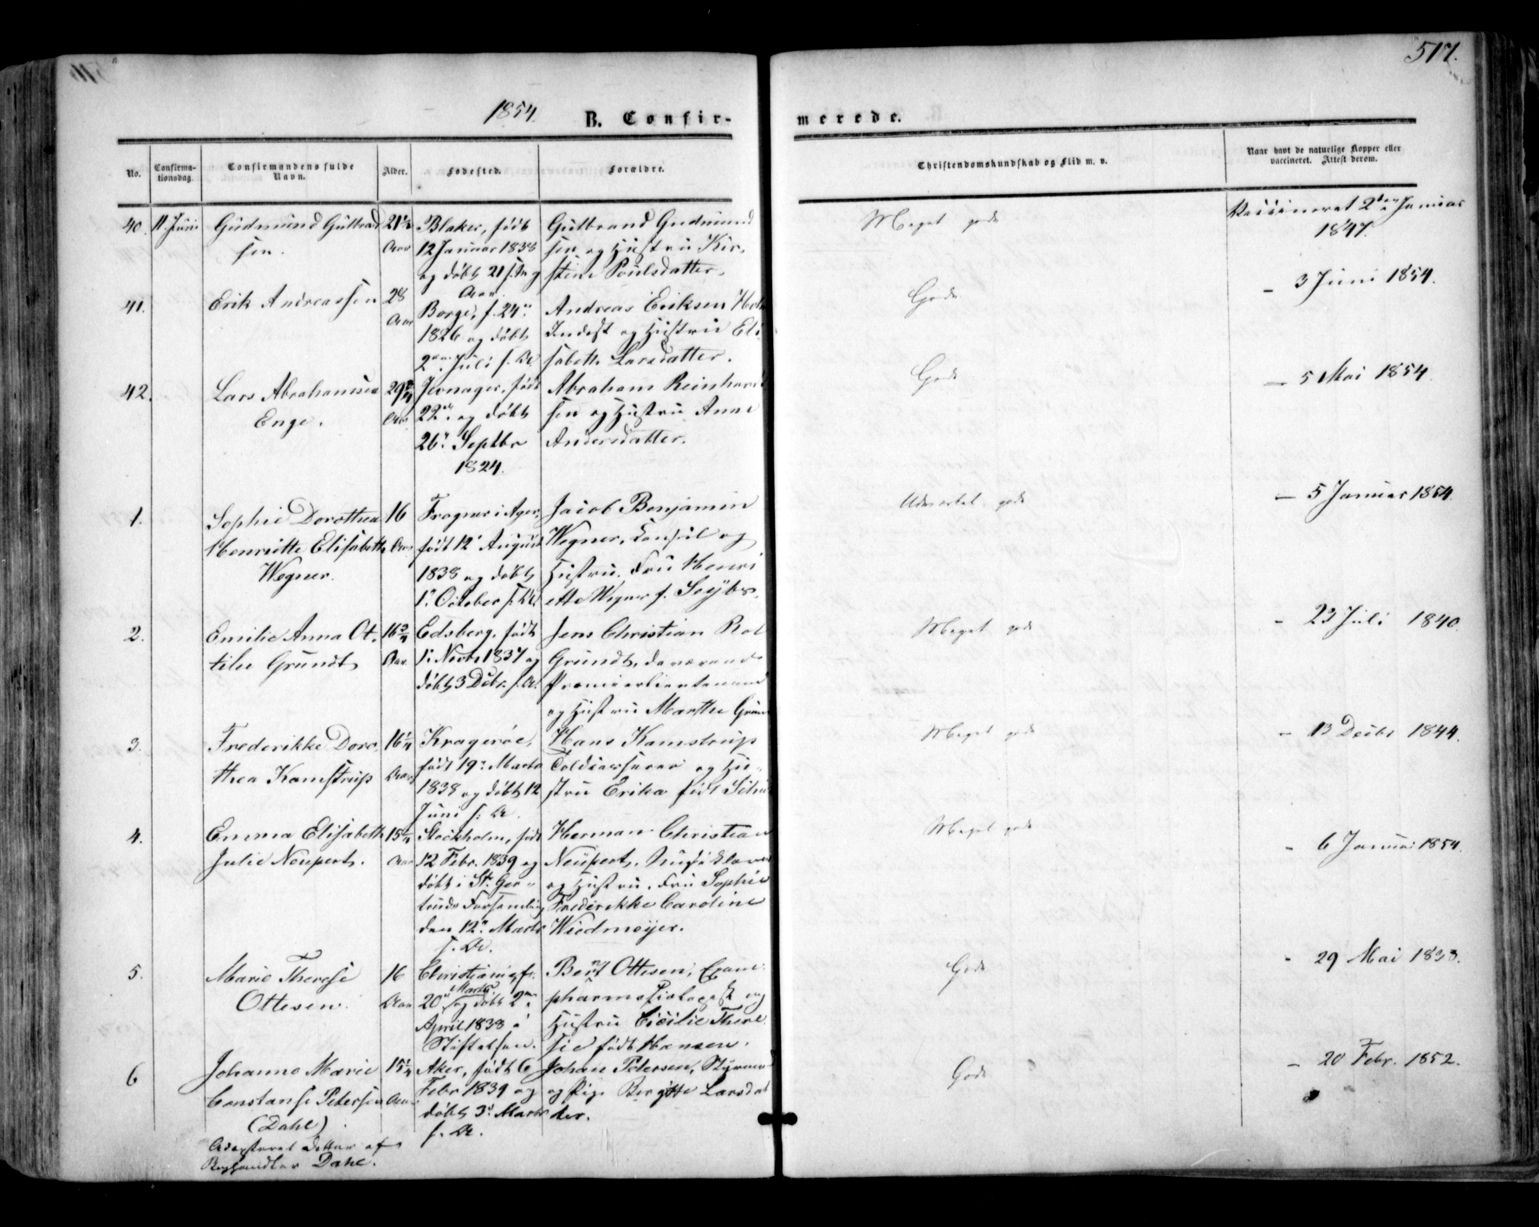 517.
1854
B. Confirmerede.
No.
Confirmationsdag.
Confirmandens fulde Navn.
Alder.
Fødested.
Forældre.
Christendomskundskab og Flid m. v.
Naar havt de naturlige Kopper eller vaccineret. Attest derom.
40.
11 Juni
Gudmund Gulbrand
sen.
21 1/2
Aar
Blaker, født
12 Januar 1833
og døbt 21 s. M
Gulbrand Gudmund
sen og Hustru Kir,
stine Poulsdatter.
Meget godt
Vaccineret 2den Januar
1847
41.
Erik Andreassen
28
Aar
Borge, f. 24
1826 og døbt
2 Juli s. A.
Andreas Eriksen
og Hustru Eli
sabeth Larsdatter.
Godt
3 Juni 1854.
42.
Lars Abrahamsen
Enge.
29 3/4
Aar
Jevnager, født
22 og døbt
26 Septbr
1824.
Abraham Reinhardt
sen og Hustru Anne
Andersdatter.
Godt
5 Mai 1854.
1.
Sophie Dorothea
Henriette Elisabeth
Wegner.
16
Aar
Frogner i Ager,
født 12 August
1838 og døbt
1 October s. A.
Jacob Benjamin
Wegner, Consul og
Hustru, Fru Henri
ette Wegner f. Seyber.
Udmærket godt
5 Januar 1854.
2.
Emilie Anna Ot,
tilie Grundt
16 3/4
Aar
Edsberg, født
1 Novbr 1837 og
døbt 3 Decbr. s. A.
Jens Christian
Grundt, daværende
Premierlieutenant
og Hustru Marthe Grun
Meget godt
23 Juli 1840.
3.
Frederikke Doro,
thea Kamstrup
16 1/4
Aar
Kragerøe,
født 19 Marts
1838 og døbt 12
Juni s. A.
Hans Kamstrup
Toldcasserer og Hu-
stru Erika født
Meget godt
13 Decbr 1844.
4.
Emma Elisabeth
Julie Neupert.
15 1/4
Aar
Stockholm, født
12 Febr. 1839 og
døbt i St. Ger-
truds Forsamling
den 12 Marts
s. A.
Herman Christian
Neupert, Musiklærer
og Hustru, Fru Sophie
Frederikke Caroline
Wiedmeyer.
Meget godt
6 Januar 1854.
5.
Marie Therese
Ottesen.
16
Aar
Christiania, f.
20 Marts og døbt 2
April 1838 i
Stiftelsen.
Berg Ottesen, Exam.
pharm.
Hustru Cicilie There
sie født Hansen.
Godt
29 Mai 1838.
6
Johanne Marie
Constanse Petersen
(Dahl)
Adopteret Datter af
Boghandler Dahl.
15 1/4
Aar
Aker, født 6
Febr 1839 og
døbt 3 Marts
s. A.
Johan Petersen, Styrmand
og Pige Bergitte Larsdat
ter.
Godt
20 Febr. 1852.